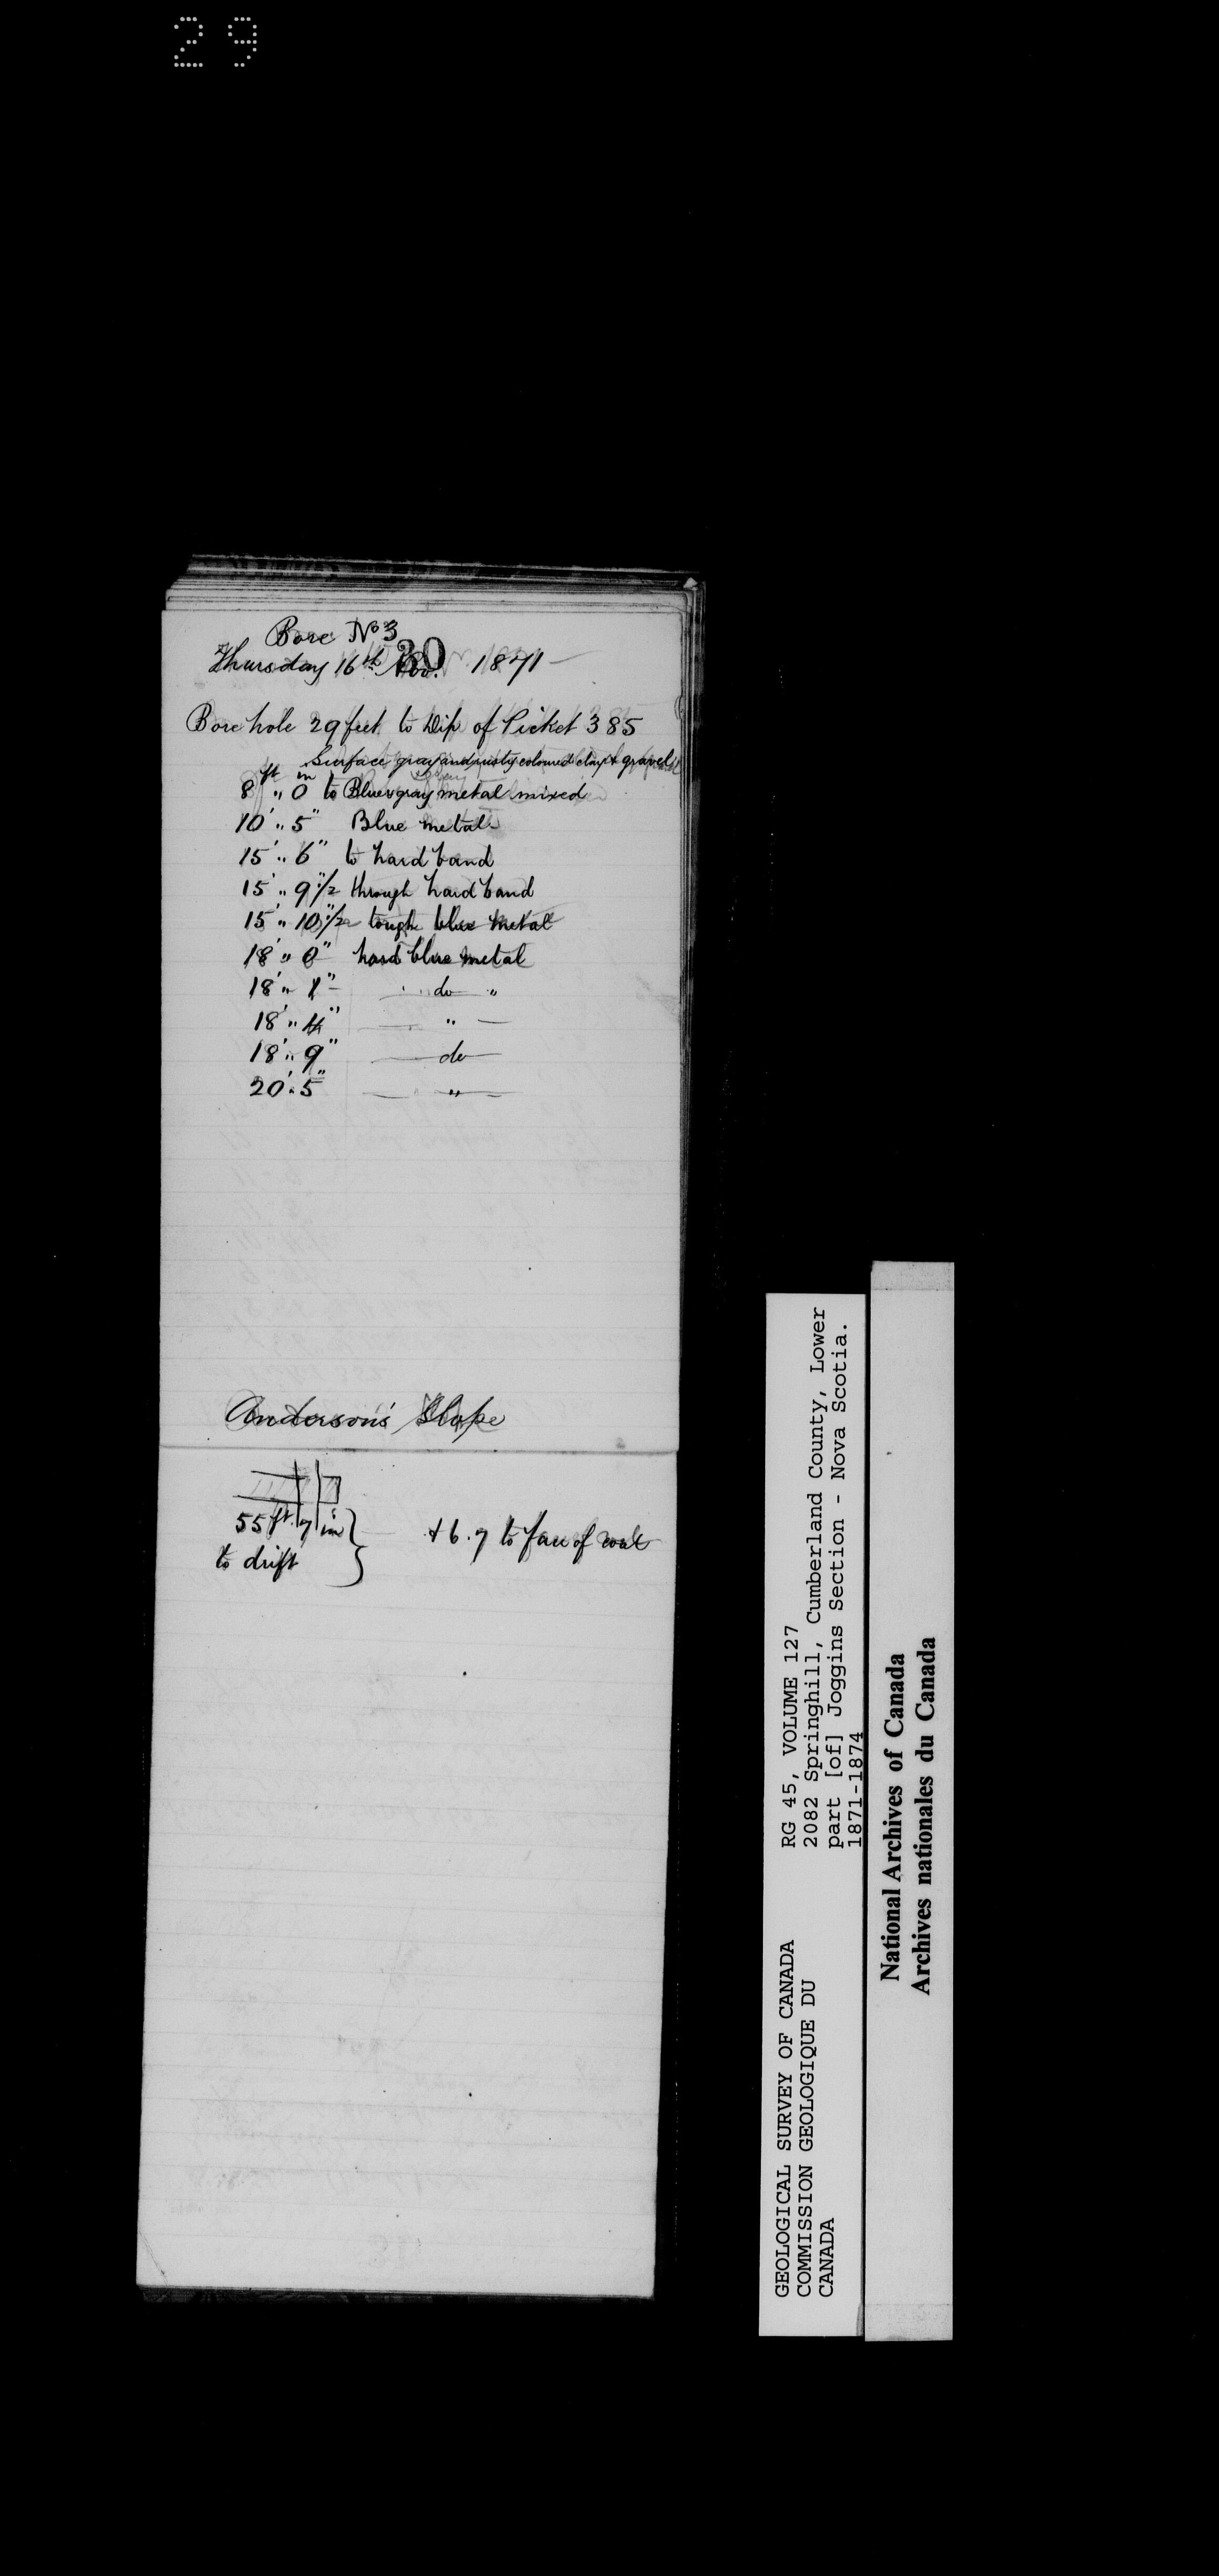 29
Bore No 3
30
Thursday 16th Nov. 1871 —
Bore hole 29 feet to Dip of Picket 385
Surface gray and rusty coloured clay & gravel
ft in
8 " 0 to Blue & gray metal mixed
10' " 5" Blue metal
15' " 6" to hard band
15' " 9"1/2 through hard band
15' " 10"1/2 tough blue metal
18' " 0" hard blue metal
18' " 1" — do "
18' " 4" — " —
18' " 9" — do —
20' " 5" — " —
Anderson's Slope
55 ft. 7 in } + 6.7 to face of coal
to drift
RG 45, VOLUME 127
2082 Springhill, Cumberland County, Lower
part [of] Joggins Section - Nova Scotia.
1871-1874
GEOLOGICAL SURVEY OF CANADA
COMMISSION GEOLOGIQUE DU
CANADA
National Archives of Canada
Archives nationales du Canada